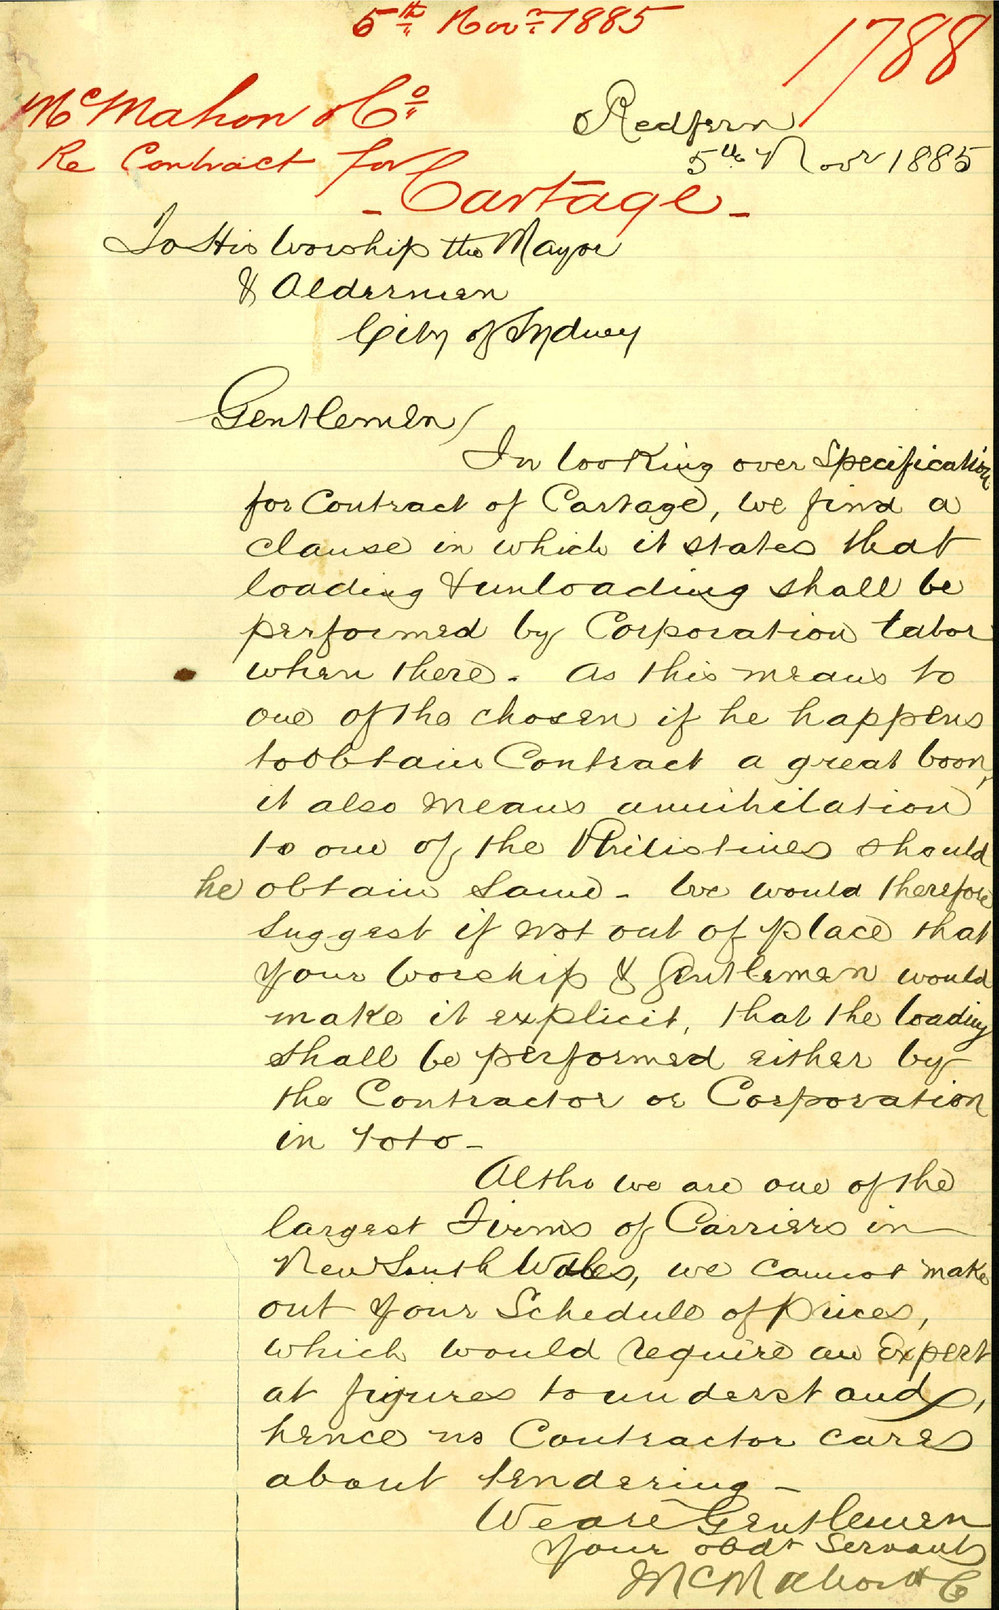 5th Novr 1885
1788
McMahon & Co
Re Contract for
- Cartage -
Redfern
5th Novr 1885
To His Worship the Mayor
& Alderman
City of Sydney
Gentlemen/
In looking over Specification
for Contract of Cartage, we find a
clause in which it states that
loading & unloading shall be
performed by Corporation labor
when there. As this means to
one of the chosen if he happens
to obtain Contract a great boon,
it also means annihilation
to one of the Philistines should
he obtain same - We would therefore
suggest if not out of place that
your Worship & Gentlemen would
make it explicit, that the loading
shall be performed either by
the Contractor or Corporation
in toto -
Altho we are one of the
largest Firms of Carriers in
New South Wales, we cannot make
out your Schedule of prices,
which would require an Expert
at figures to understand,
hence no Contractor cares
about tendering -
We are Gentlemen
Your obdt Servants
McMahon & Co